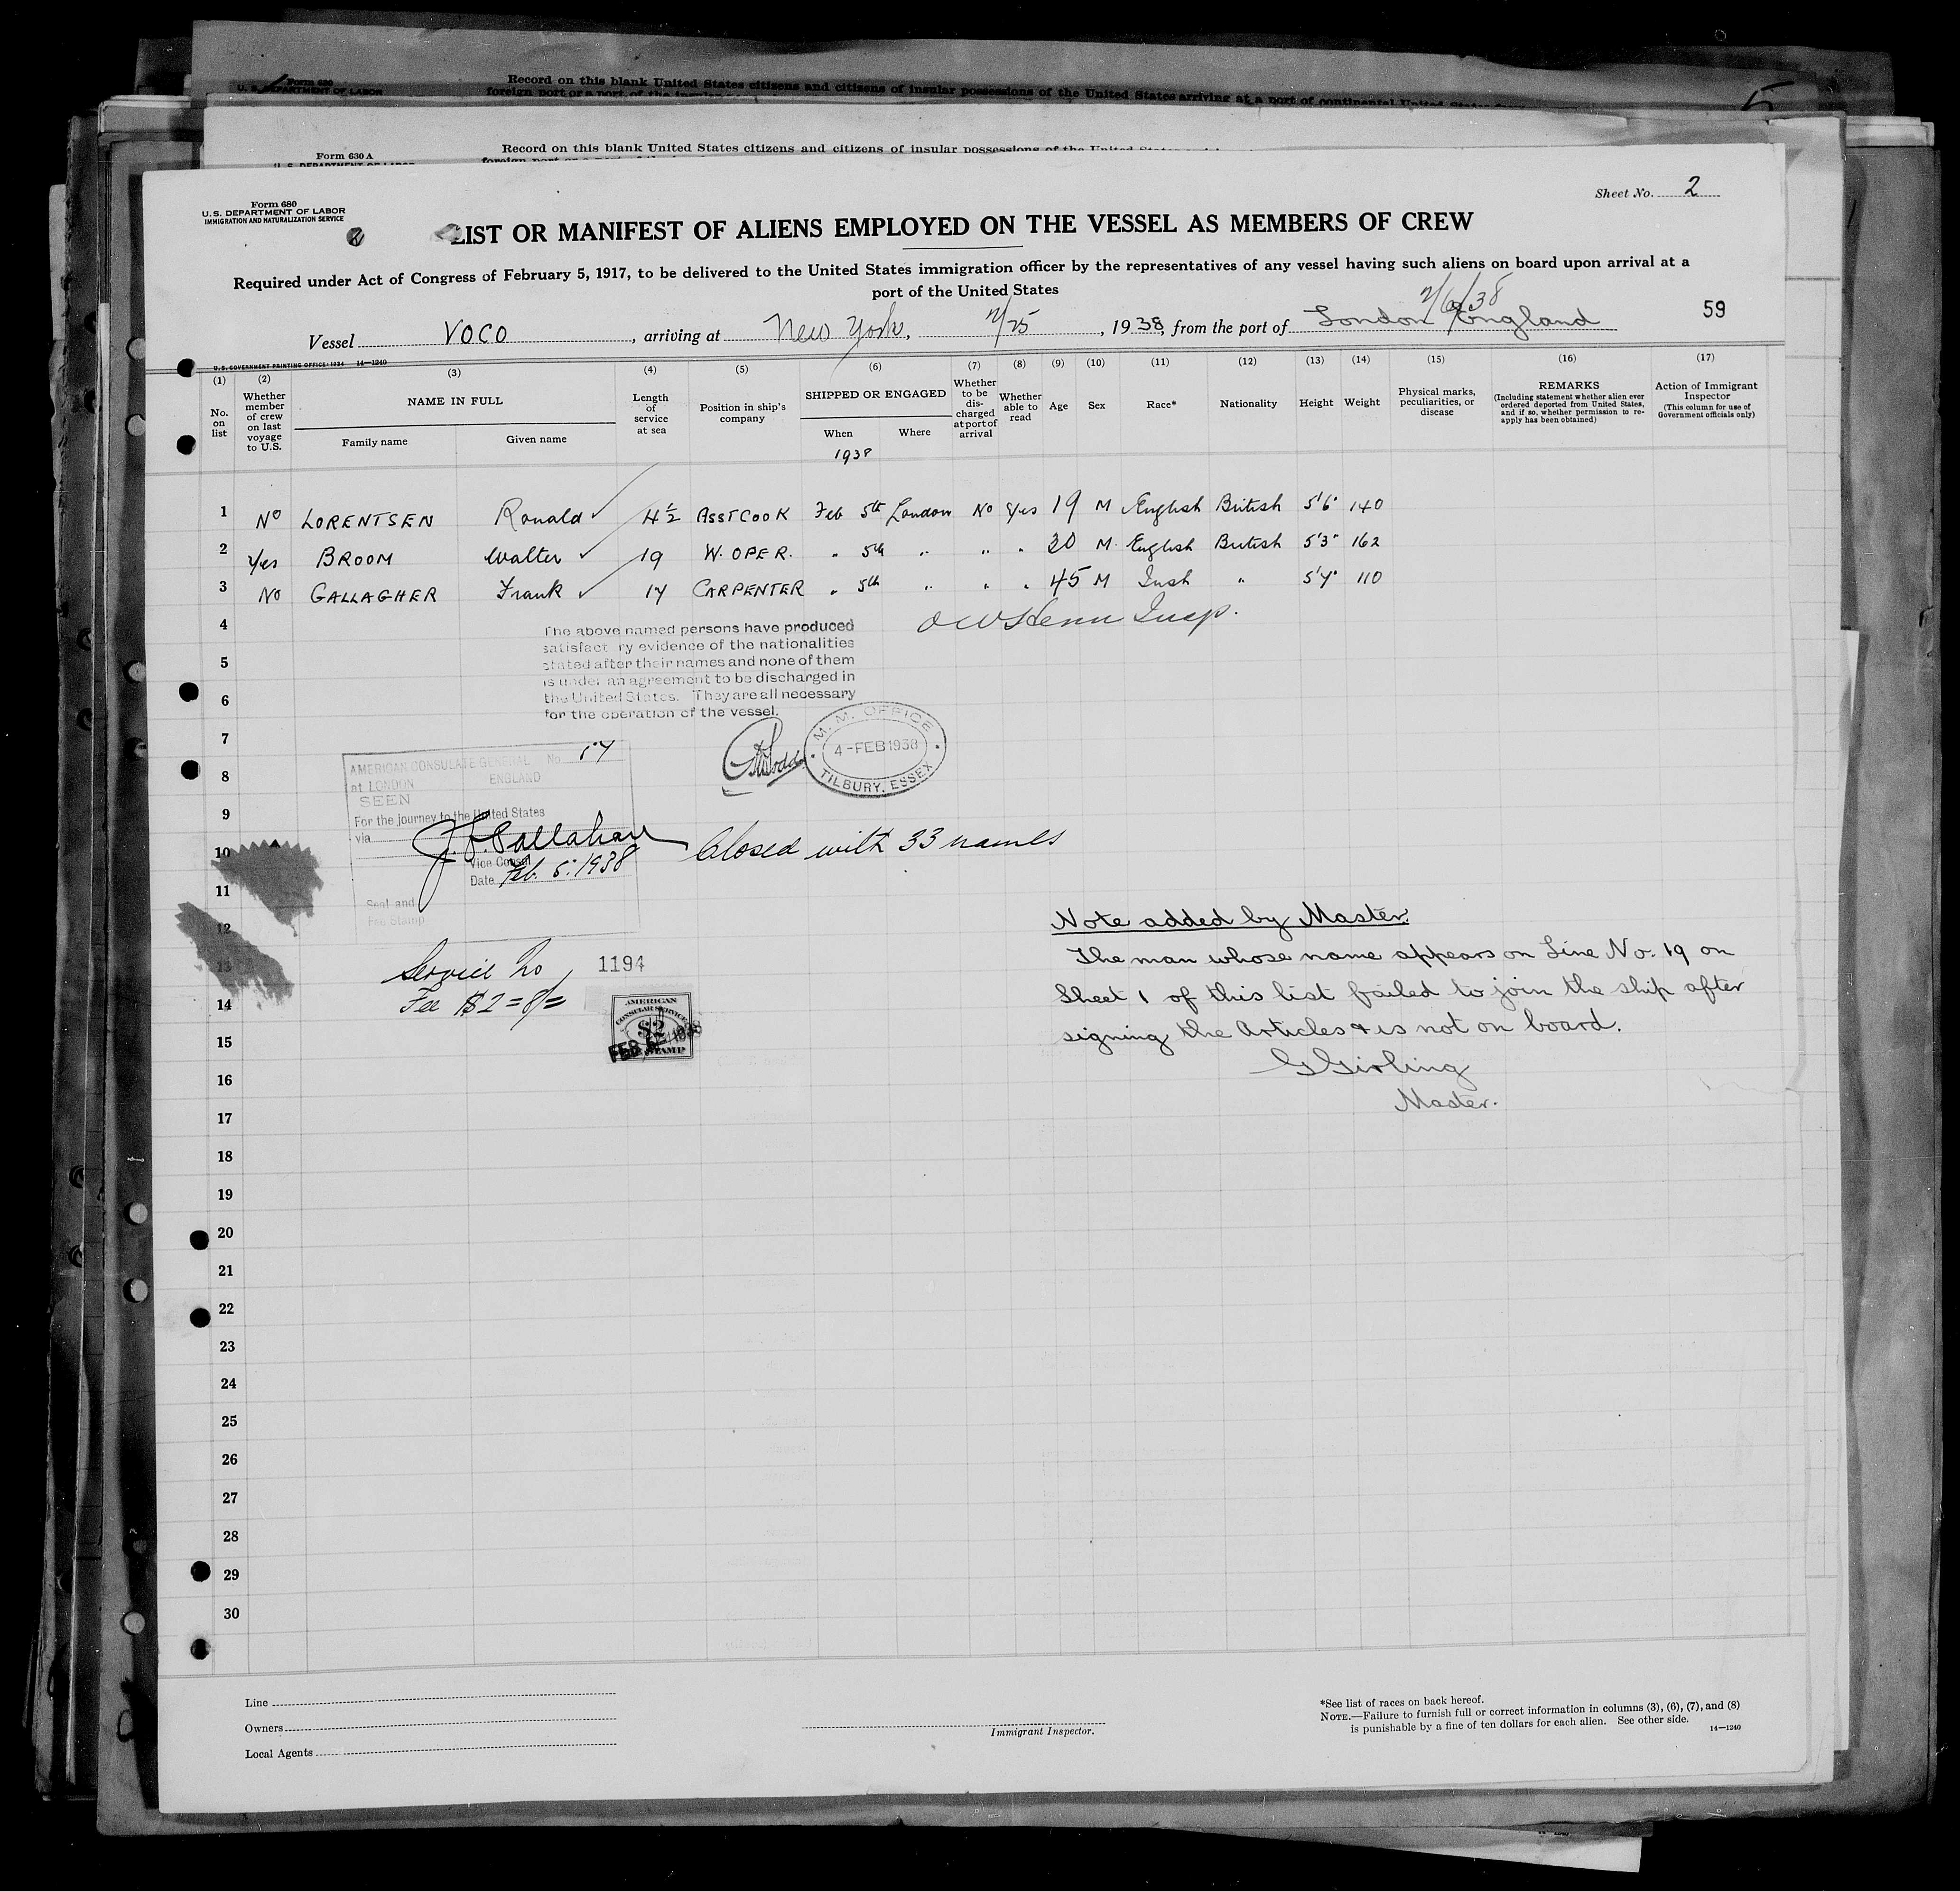 Form 630
U. S. DEPARTMENT OF LABOR
Record on this blank United States citizens and citizens of insular possessions of the United States arriving at a port of continental United States
foreign port or a port of the insular
5
Form 630 A
U. S. DEPARTMENT OF LABOR
Record on this blank United States citizens and citizens of insular possessions of the United States
Form 680
U. S. DEPARTMENT OF LABOR
IMMIGRATION AND NATURALIZATION SERVICE
Sheet No. 2
LIST OR MANIFEST OF ALIENS EMPLOYED ON THE VESSEL AS MEMBERS OF CREW
Required under Act of Congress of February 5, 1917, to be delivered to the United States immigration officer by the representatives of any vessel having such aliens on board upon arrival at a
port of the United States
2/6/38
59
Vessel VOCO, arriving at New York, 2/25, 1938, from the port of London England
U. S. GOVERNMENT PRINTING OFFICE: 1934 14—1240
(1) (2) (3) (4) (5) (6) (7) (8) (9) (10) (11) (12) (13) (14) (15) (16) (17)
No. on list
Whether member of crew on last voyage to U.S.
NAME IN FULL
Family name
Given name
Length of service at sea
Position in ship's company
SHIPPED OR ENGAGED
When
Where
1938
Whether to be discharged at port of arrival
Whether able to read
Age
Sex
Race*
Nationality
Height
Weight
Physical marks, peculiarities, or disease
REMARKS
(Including statement whether alien ever ordered deported from United States, and if so, whether permission to reapply has been obtained)
Action of Immigrant Inspector
(This column for use of Government officials only)
1 No LORENTSEN Ronald ✓ 4½ ASST COOK Feb 5th London No Yes 19 M English British 5'6" 140
2 Yes BROOM Walter ✓ 19 W. OPER. " 5th " " " 30 M. English British 5'3" 162
3 No GALLAGHER Frank ✓ 17 CARPENTER " 5th " " " 45 M Irish " 5'7" 110
4
The above named persons have produced
satisfactory evidence of the nationalities
stated after their names and none of them
is under an agreement to be discharged in
the United States. They are all necessary
for the operation of the vessel.
Insp.
5
6
7
M. M. OFFICE
4-FEB 1938
TILBURY, ESSEX
8
AMERICAN CONSULATE GENERAL No 57
at LONDON ENGLAND
SEEN
For the journey to the United States
via
9
J. F. Callahan
Vice Consul
Date Feb. 5. 1938
Seal and
Fee Stamp
10
Closed with 33 names
11
12
Note added by Master.
The man whose name appears on Line No. 19 on
Sheet 1 of this list failed to join the ship after
signing the Articles & is not on board.
G Girling
Master.
13
Service No 1194
Fee $2 = 8/=
14
AMERICAN
CONSULAR SERVICE
$2
FEE STAMP
FEB 5 1938
15
16
17
18
19
20
21
22
23
24
25
26
27
28
29
30
Line
Owners
Local Agents
Immigrant Inspector.
*See list of races on back hereof.
NOTE.—Failure to furnish full or correct information in columns (3), (6), (7), and (8)
is punishable by a fine of ten dollars for each alien. See other side.
14—1240